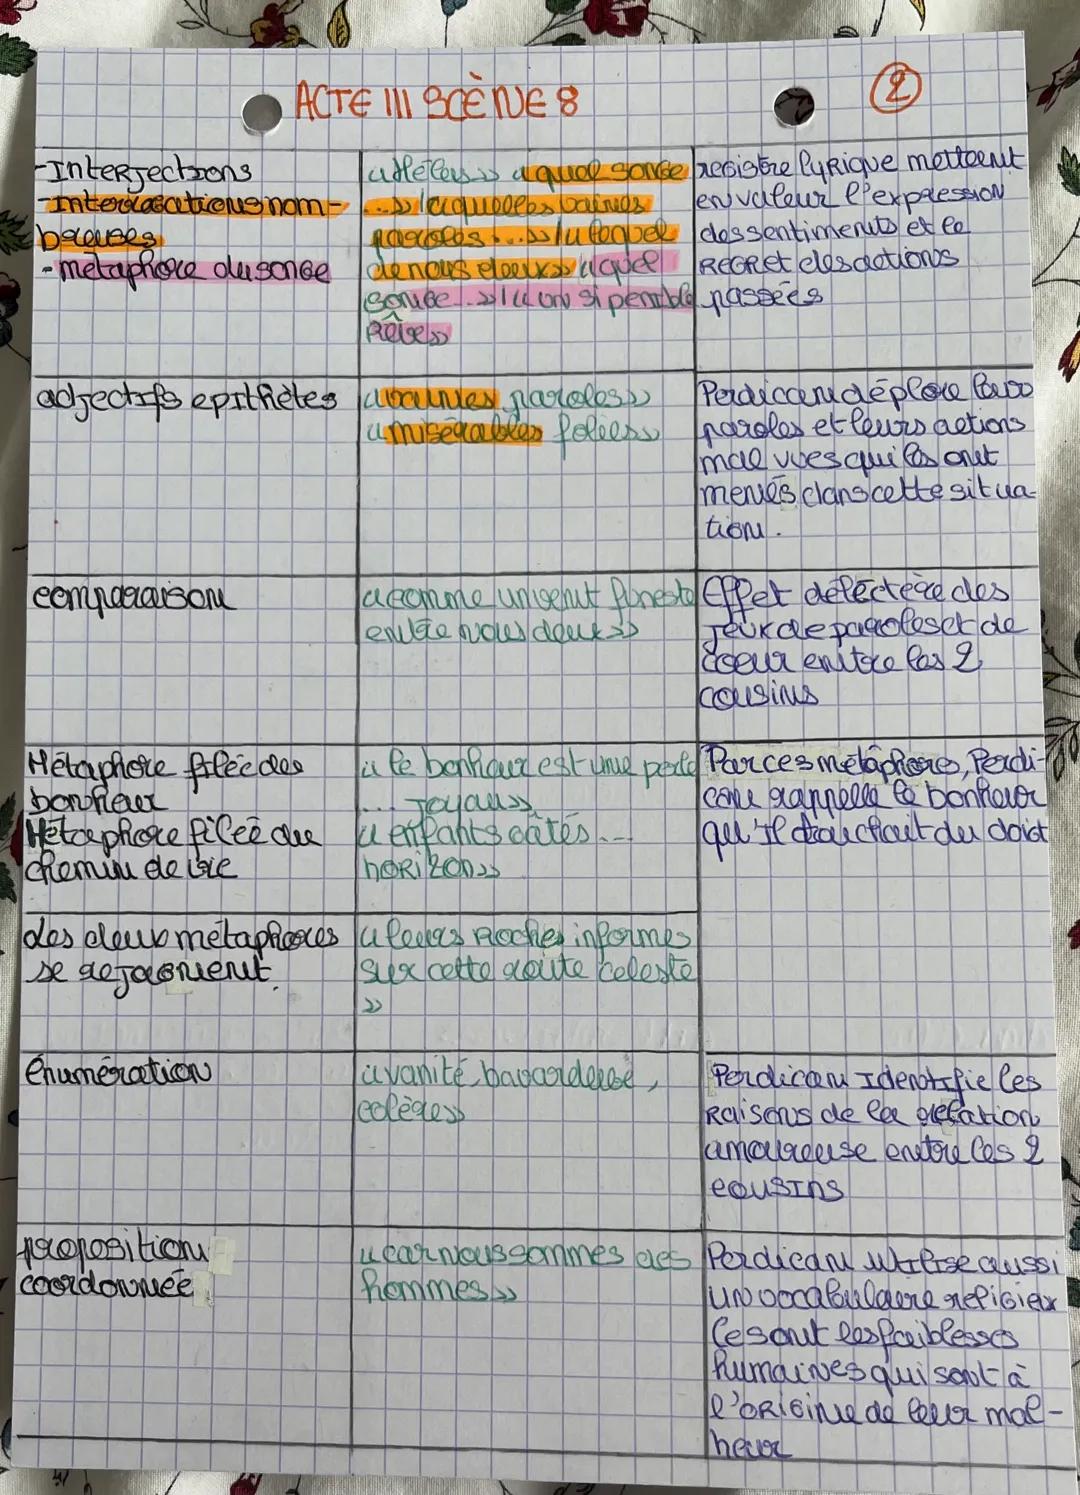 ACTE III SCÈNE 8
2
-Interjections
-Interrogations nom-
breuses
-métaphore du songe
« Hélas » « quel songe
...» « quelles vaines
paroles...» « lequel
de nous deux » « quel
songe...» « un si pénible
Rêve »
registre lyrique mettent
en valeur l'expression
des sentiments et le
REGRET des actions
passées
adjectifs epithètes
« vaines paroles »
« misérables folies »
Perdican déplore leurs
paroles et leurs actions
mal vues qui les ont
menés dans cette situa-
tion.
comparaison
« comme un vent funeste
entre nous deux »
Effet délectère des
Jeux de paroles et de
coeur entre les 2
cousins
Métaphore filée des
bonheur
Métaphore filée du
chemin de vie
« le bonheur est une perle
... Joyau »
« enfants gâtés...
horizon »
Par ces métaphores, Perdi-
can rappelle le bonheur
qu'Il touchait du doigt
des deux métaphores
se rejoignent.
« leurs Roches informes
sur cette route celeste
»
énumération
« vanité, bavarderse,
colères »
Perdican Identifie les
Raisons de la relation
amoureuse entre les 2
cousins
proposition
coordonnée
« car nous sommes des
hommes »
Perdican utilise aussi
un vocabulaire religieux
Ce sont les faiblesses
humaines qui sont à
l'origine de leur mal-
heur